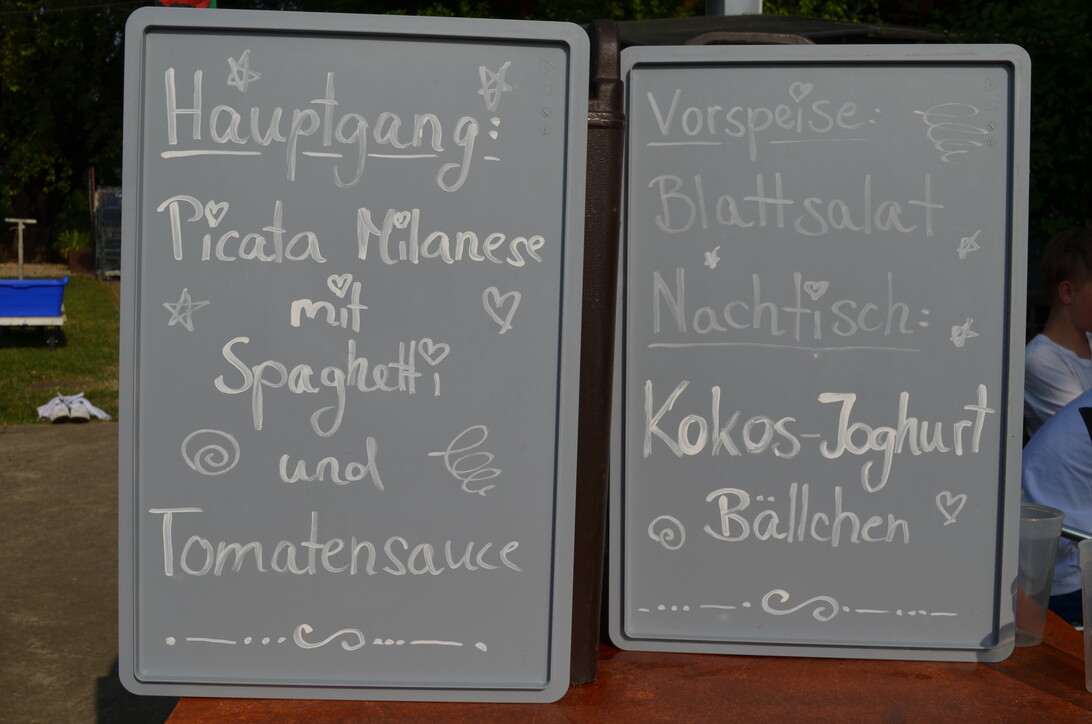 Hauptgang:
Picata Milanese
mit
Spaghetti
und
Tomatensauce
Vorspeise:
Blattsalat
Nachtisch:
Kokos-Joghurt
Bällchen